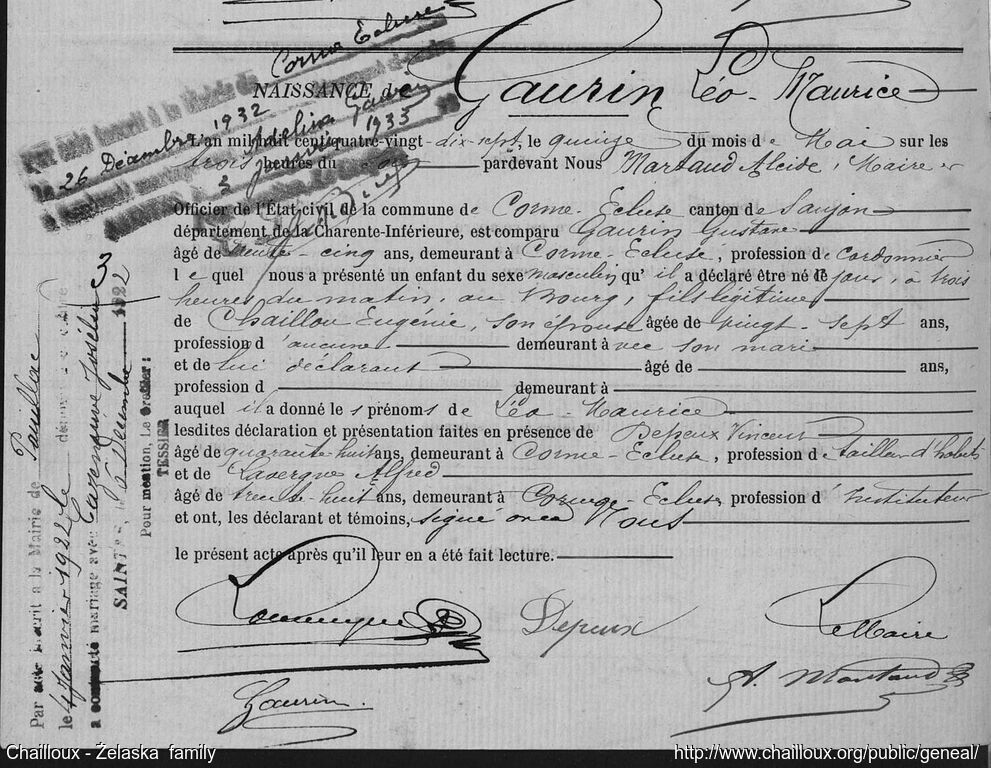 Corme Ecluse
NAISSANCE de Gaurin Léo-Maurice
26 Décembre 1932
3 janvier 1933
L'an mil huit cent quatre-vingt-dix-sept, le quinze du mois de Mai sur les
trois heures du soir pardevant Nous Martaud Alcide, Maire
Officier de l'État-civil de la commune de Corme-Ecluse canton de Saujon
département de la Charente-Inférieure, est comparu Gaurin Gustave
âgé de trente-cinq ans, demeurant à Corme-Ecluse, profession de cordonnier
lequel nous a présenté un enfant du sexe masculin qu'il a déclaré être né ce jour, à trois
heures du matin, au bourg, fils légitime
de Chaillou Eugénie, son épouse âgée de vingt-sept ans,
profession d'aucune demeurant avec son mari
et de lui déclarant âgé de ans,
profession d demeurant à
auquel il a donné les prénoms de Léo-Maurice
lesdites déclaration et présentation faites en présence de Depeux Vincent
âgé de quarante huit ans, demeurant à Corme-Ecluse, profession de tailleur d'habits
et de Lavergne Alfred
âgé de trente-huit ans, demeurant à Corme-Ecluse profession d'instituteur
et ont, les déclarant et témoins, signé avec Nous
le présent acte après qu'il leur en a été fait lecture.
Depeux
Le Maire
A. Martaud
Gaurin
Par acte inscrit à la Mairie de Pauillac
le 4 Janvier 1922 le
a contracté mariage avec
SAINTES, 1922
Pour mention, Le Greffier :
TESSIER
Chailloux - Zelaska family
http://www.chailloux.org/public/geneal/